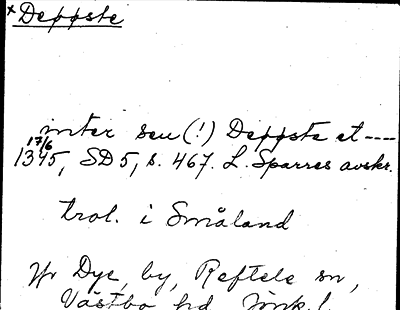 × Deppste
inter seu (!) Deppste et ----
17/6
1345, SD 5, s. 467. L. Sparres avskr.
trol. i Småland
Jfr Dye, by, Reftele sn,
Västbo hd, Jönk. l.